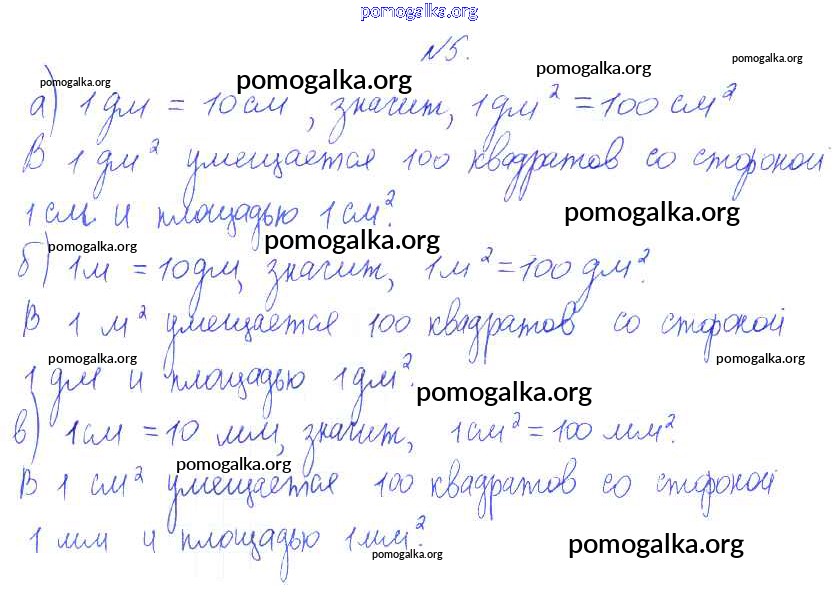 pomogalka.org
№5.
pomogalka.org pomogalka.org pomogalka.org pomogalka.org
а) 1 дм = 10 см, значит, 1 дм² = 100 см²
В 1 дм² умещается 100 квадратов со стороной
1 см и площадью 1 см². pomogalka.org
pomogalka.org pomogalka.org
б) 1 м = 10 дм, значит, 1 м² = 100 дм².
В 1 м² умещается 100 квадратов со стороной
pomogalka.org pomogalka.org
1 дм и площадью 1 дм². pomogalka.org
в) 1 см = 10 мм, значит, 1 см² = 100 мм².
pomogalka.org
В 1 см² умещается 100 квадратов со стороной
1 мм и площадью 1 мм². pomogalka.org
pomogalka.org